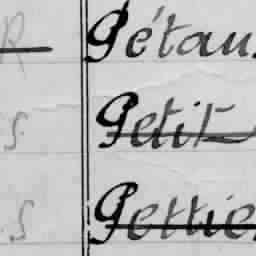 R Pétau
S Petit
S Pettie